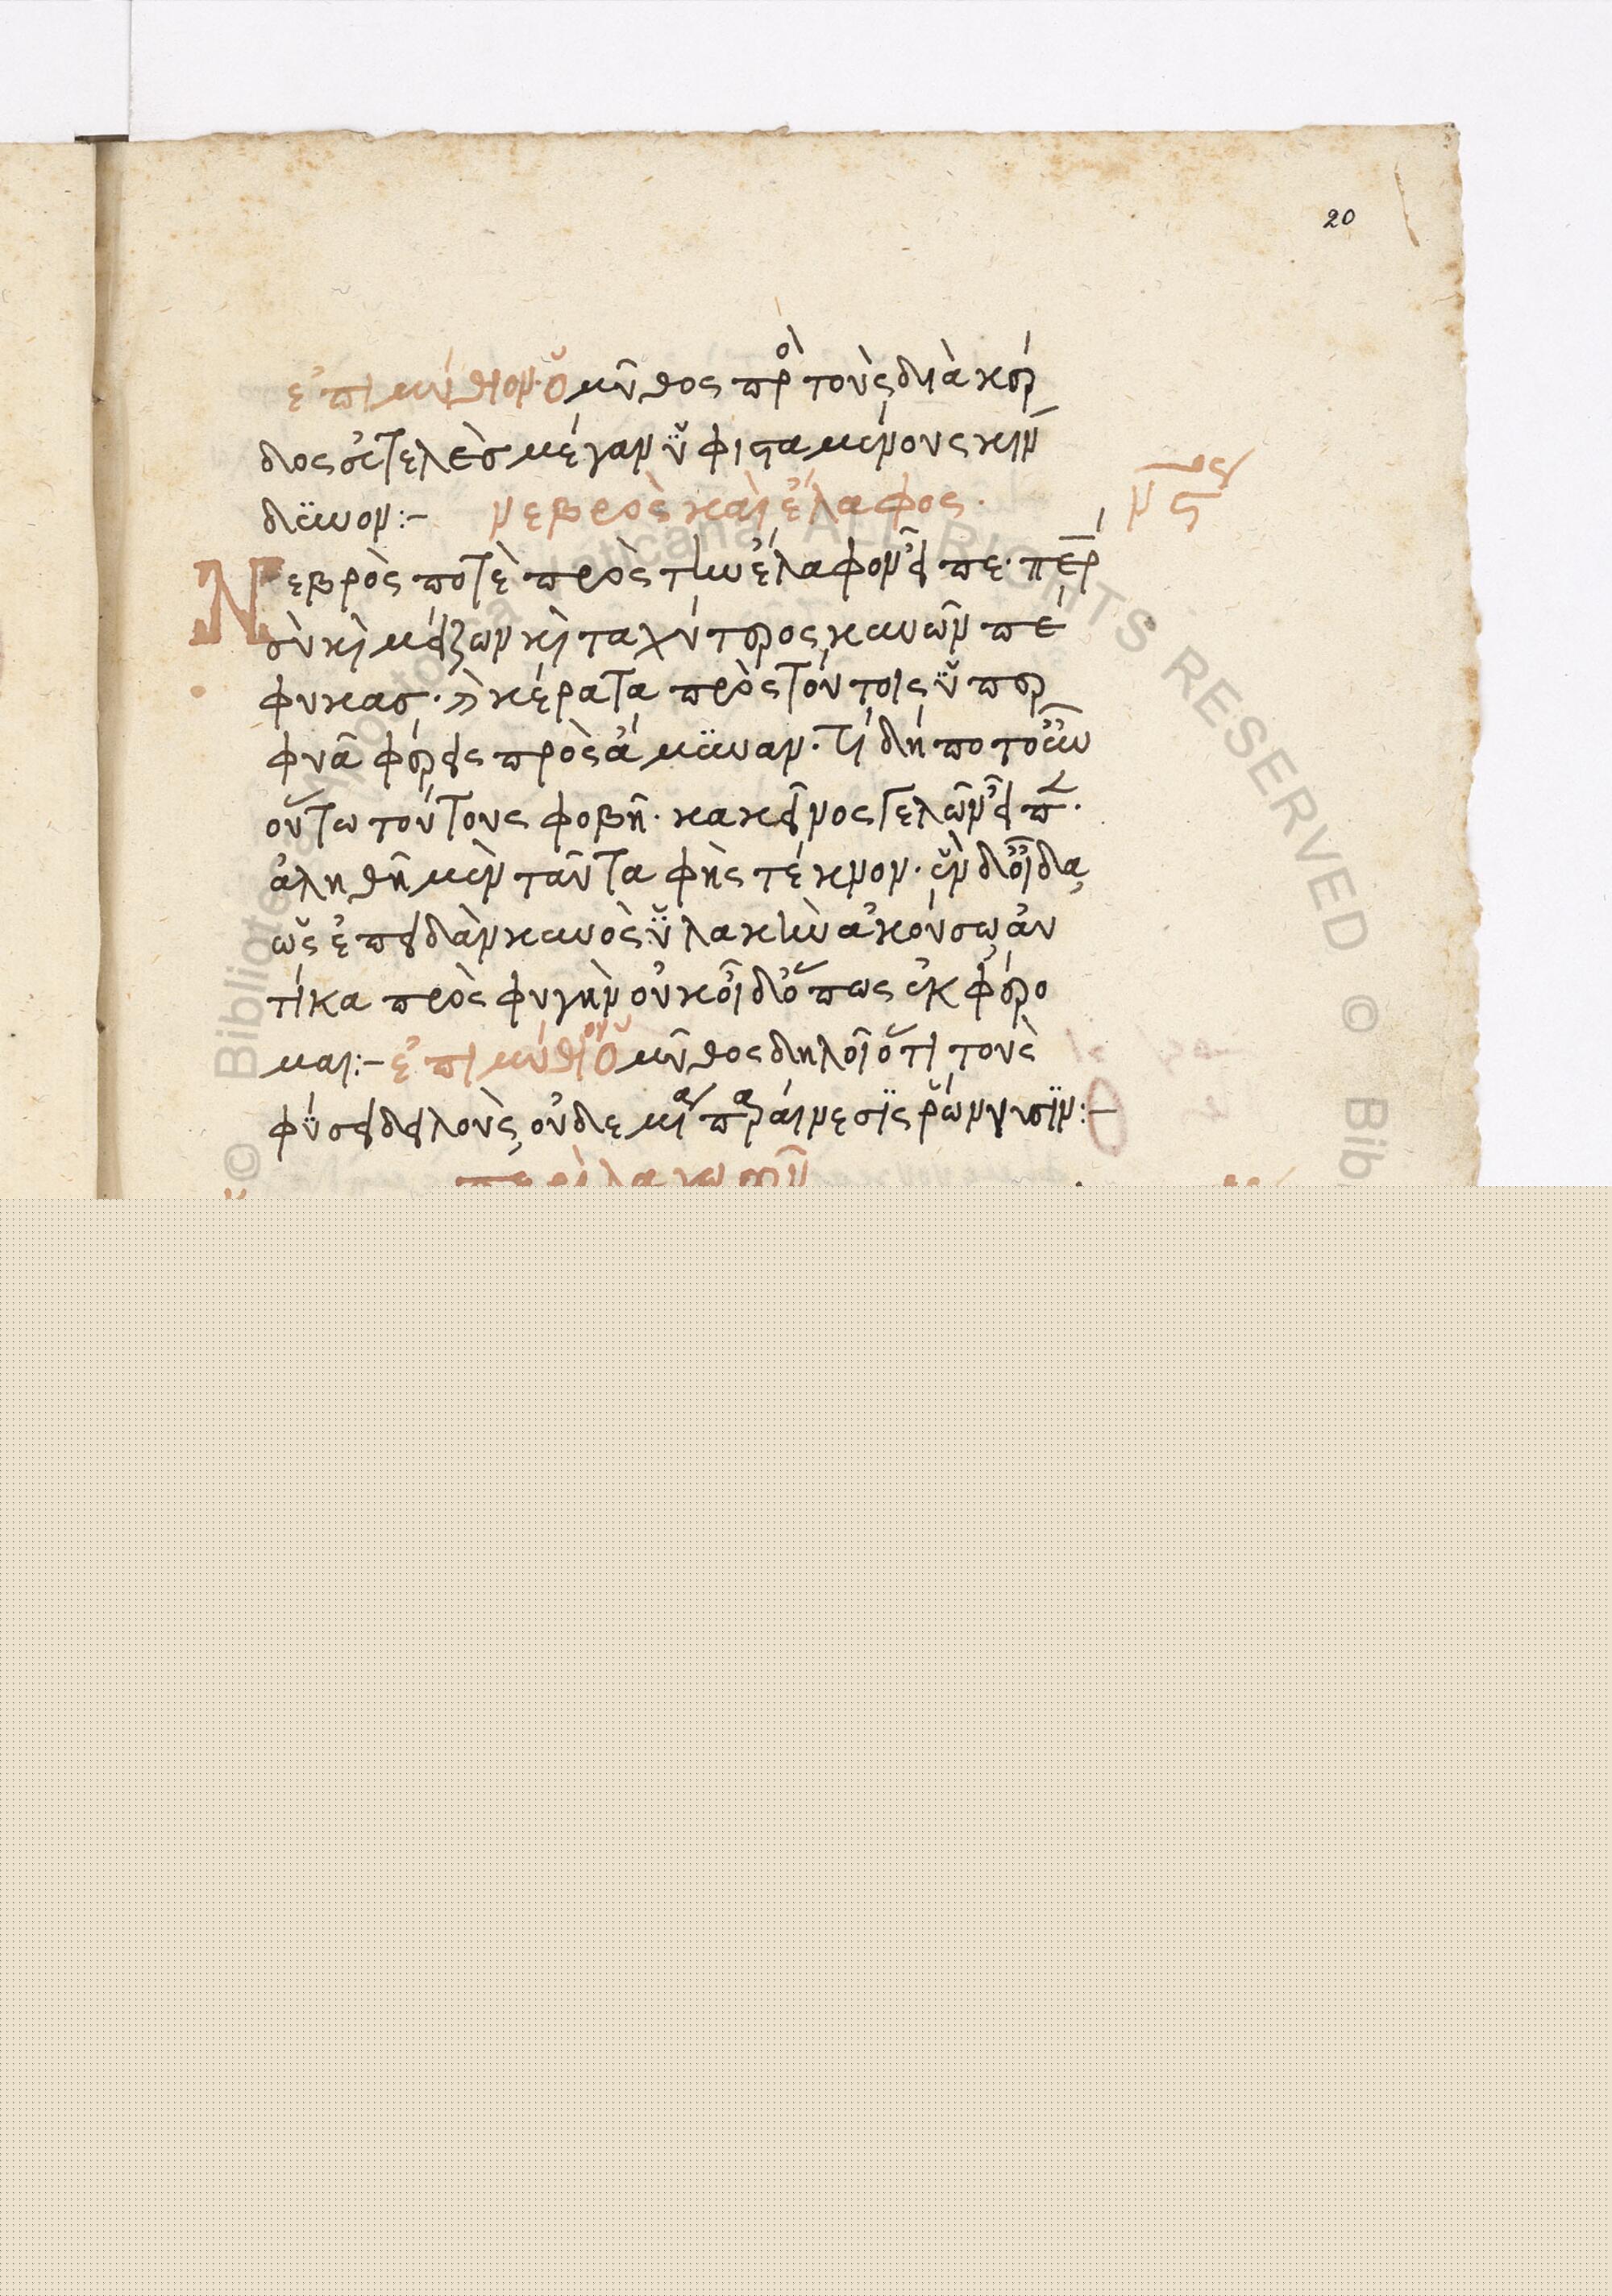 20
ἐπιμύθιον· ὁ μῦθος πρὸ τοὺς διὰ κέρ
δος εὐτελὲσ μέγαν ὑφισταμένους κίν
δϋνον:– νεβρὸς καὶ ἔλαφος·
μς
Νεβρὸς ποτὲ πρὸς τὴν ἔλαφον εἶπε· πέρ
σὺ κὶ μείζων κὶ ταχύτερος κυνῶν πέ
φυκασ· κέρατα πρὸς τούτοις ὑπερ
φυᾶ φέρεις πρὸς ἄμϋναν· τί δήποτ οὖν
οὕτω τούτους φοβῆ· κακεῖνος γελῶν εἶπ·
ἀληθῆ μὲν ταῦτα φὴς τέκνον· ἓν δ οἶδα
ὡς ἐπειδὰν κυνὸς ὑλακὴν ἀκούσω αὐ
τίκα πρὸς φυγὴν οὐκ οἶδ ὅπως ἐκφέρο
μαι:– ἐπιμύθιον ὁ μῦθος δηλοῖ ὅτι τοὺς
φύσει δειλοὺς οὐδεμία παραίνεσϊς ῥώννυσϊν:–